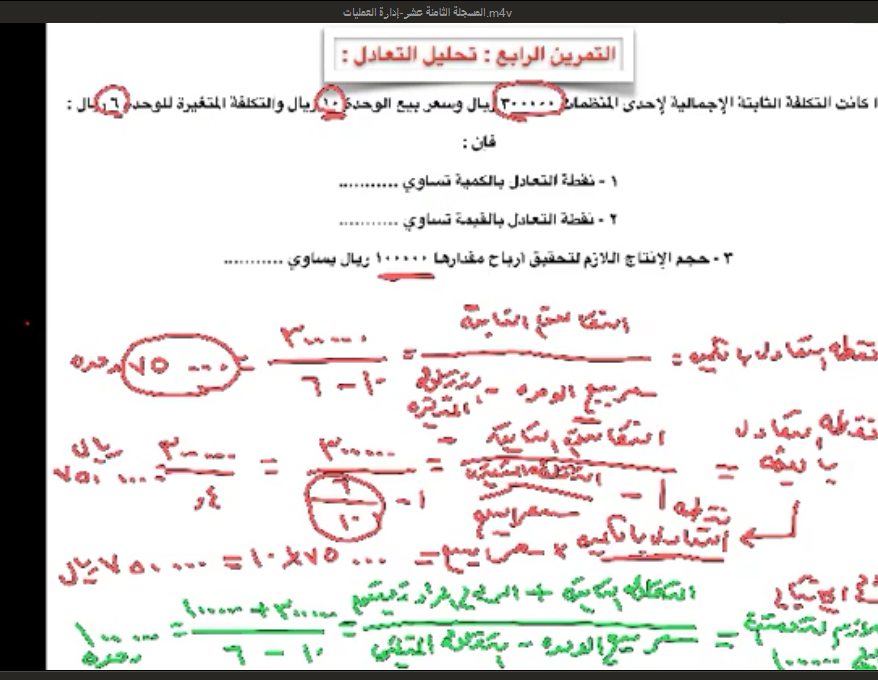 المسجلة الثامنة عشر-إدارة العمليات.m4v
التمرين الرابع : تحليل التعادل :
ا كانت التكلفة الثابتة الإجمالية لإحدى المنظمات ٣٠٠٠٠٠ ريال وسعر بيع الوحدة ١٠ ريال والتكلفة المتغيرة للوحدة ٦ ريال :
فإن :
١ - نقطة التعادل بالكمية تساوي ...........
٢ - نقطة التعادل بالقيمة تساوي ...........
٣ - حجم الإنتاج اللازم لتحقيق ارباح مقدارها ١٠٠٠٠٠ ريال يساوي ...........
نقطة التعادل بالكمية = التكاليف الثابتة / سعر بيع الوحدة - التكلفة المتغيرة = ٣٠٠٠٠٠ / ١٠ - ٦ = ٧٥٠٠٠ وحدة
نقطة التعادل بالقيمة = التكاليف الثابتة / ١ - التكلفة المتغيرة / سعر البيع = ٣٠٠٠٠٠ / ١ - ٦ / ١٠ = ٣٠٠٠٠٠ / ٤, = ٧٥٠٠٠٠ ريال
نقطة التعادل بالكمية × سعر البيع = ٧٥٠٠٠ × ١٠ = ٧٥٠٠٠٠ ريال
التكلفة الثابتة + / سعر بيع الوحدة - التكلفة = ٣٠٠٠٠٠ + ١٠٠٠٠٠ / ١٠ - ٦ = ١٠٠٠٠٠ وحدة